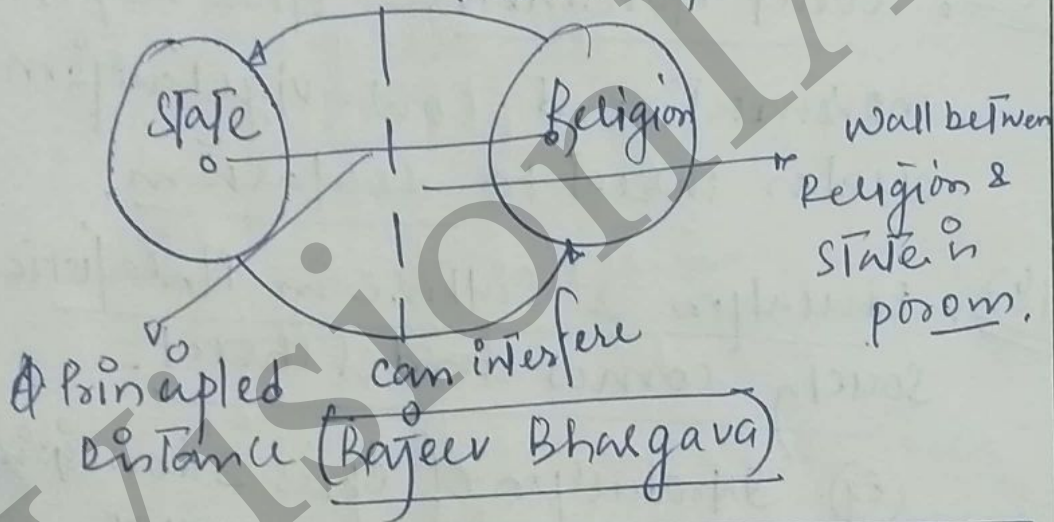 State
Religion
Wall between
Religion &
State is
porous.
can interfere
Principled
Distance (Rajeev Bhargava)
VisionIAS